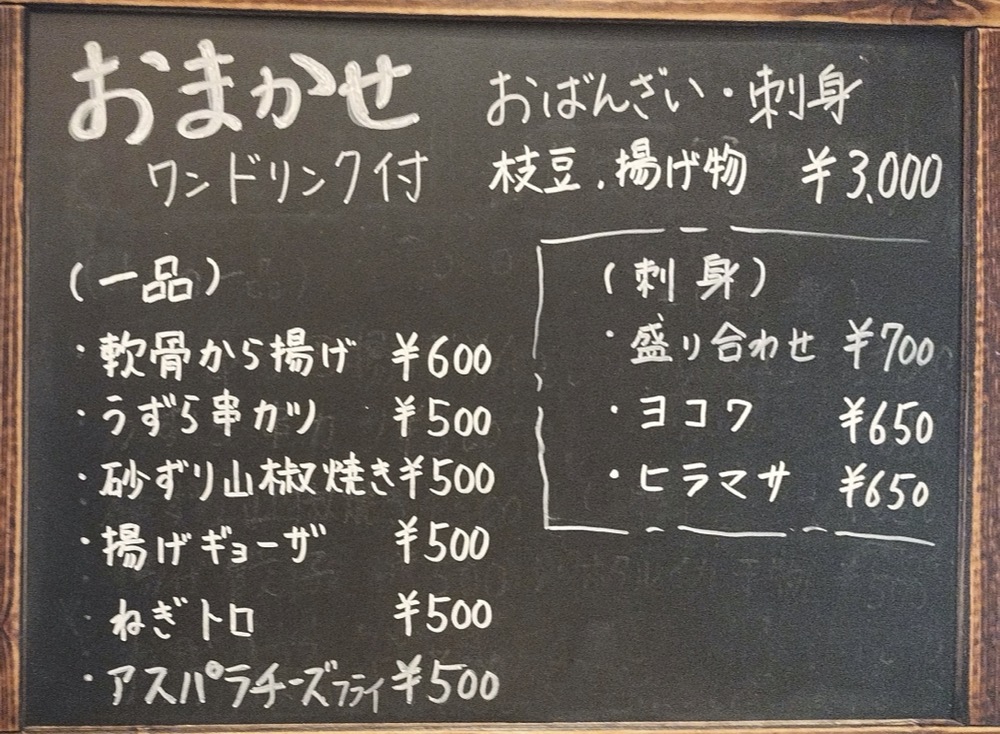 おまかせ
ワンドリンク付
おばんざい・刺身
枝豆.揚げ物 ¥3,000
(一品)
・軟骨から揚げ ¥600
・うずら串カツ ¥500
・砂ずり山椒焼き ¥500
・揚げギョーザ ¥500
・ねぎトロ ¥500
・アスパラチーズフライ ¥500
(刺身)
・盛り合わせ ¥700
・ヨコワ ¥650
・ヒラマサ ¥650